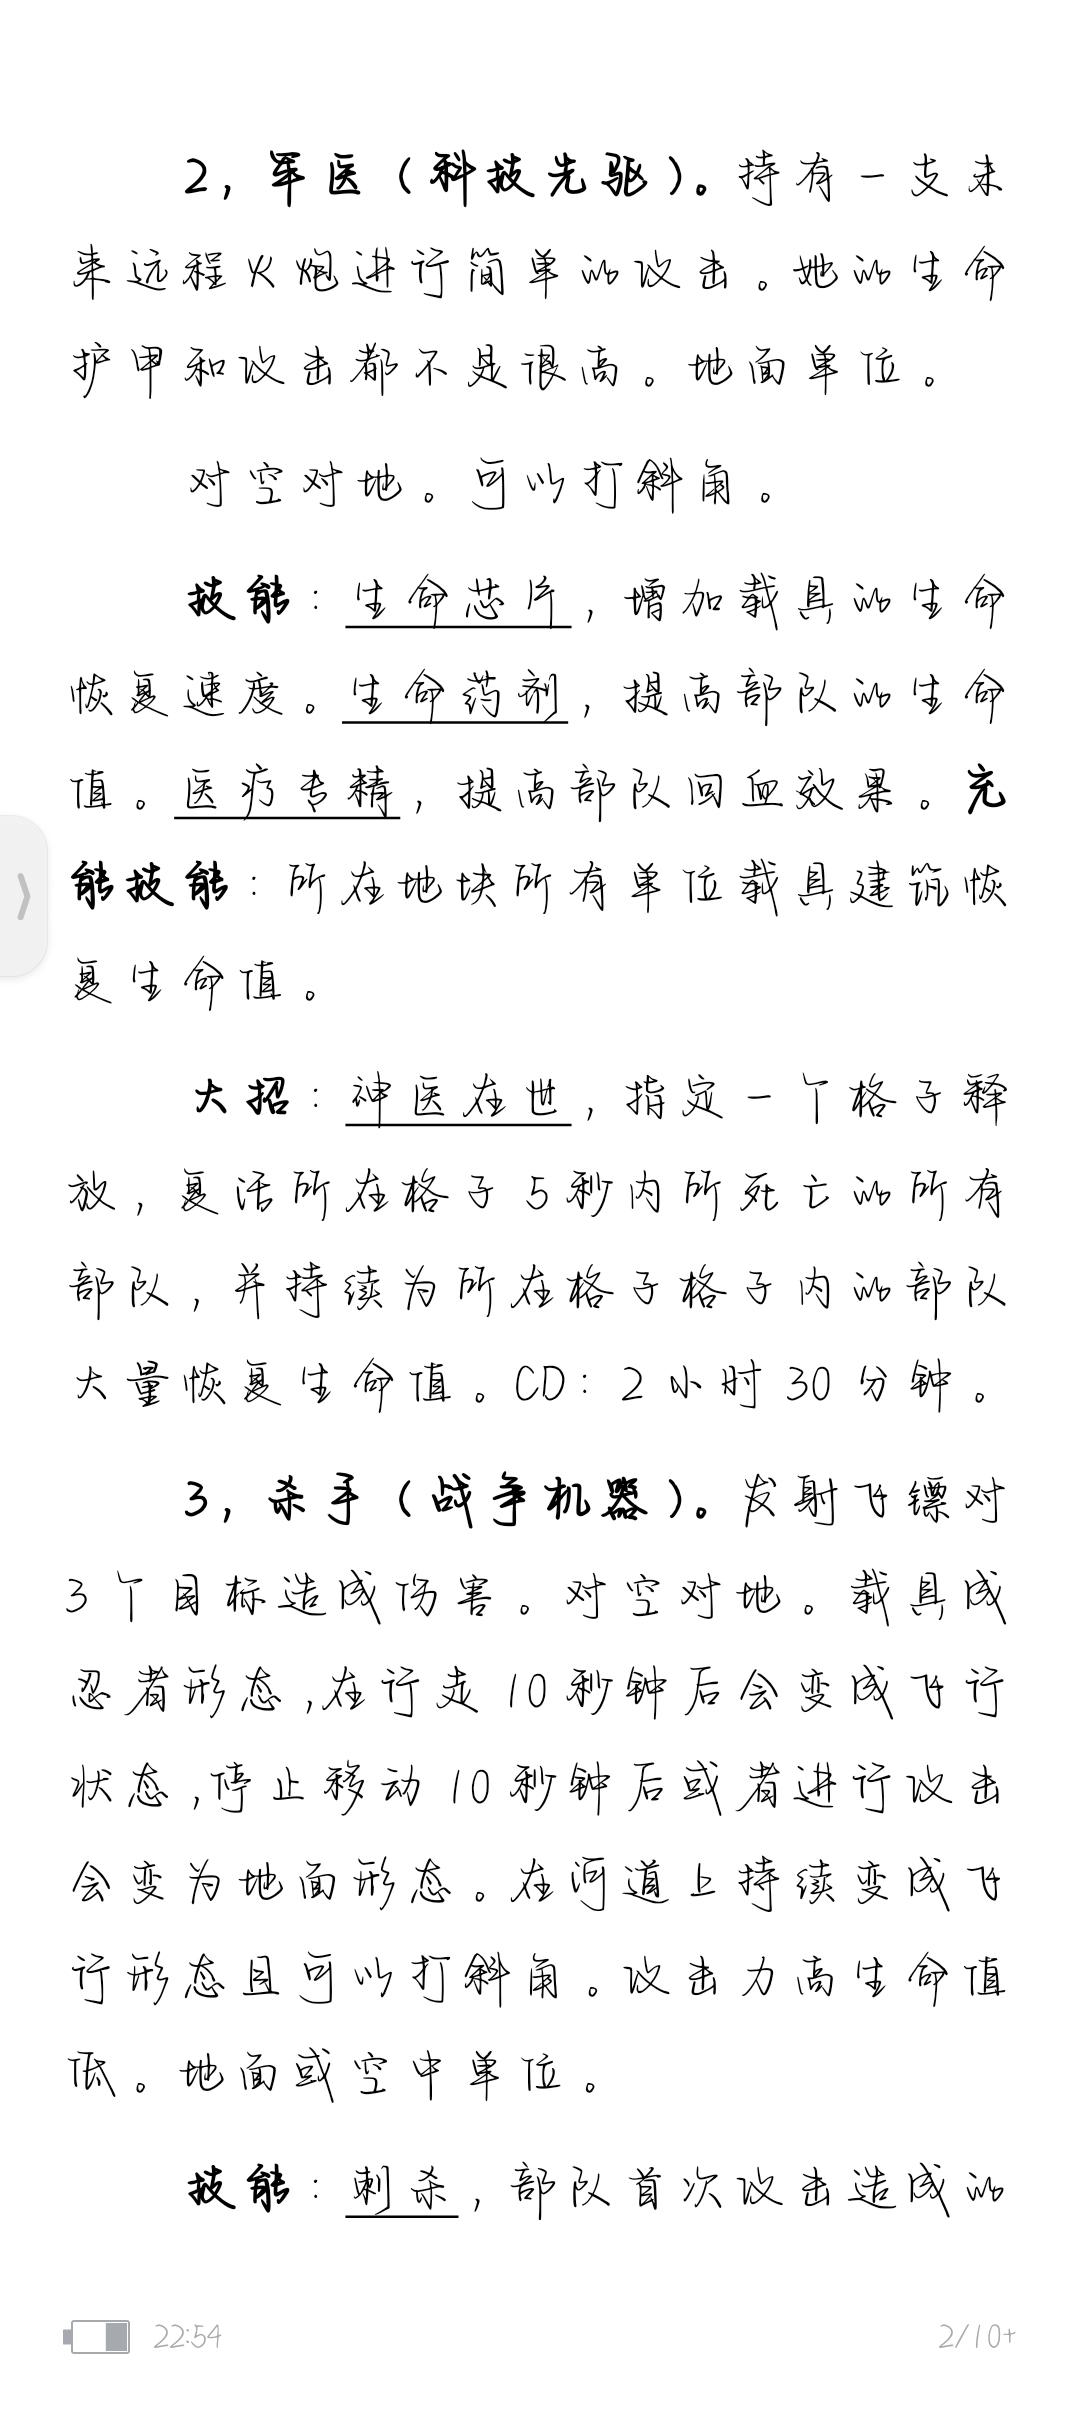 2，军医（科技先驱）。持有一支未
来远程火炮进行简单的攻击。她的生命
护甲和攻击都不是很高。地面单位。
对空对地。可以打斜角。
技能：生命芯片，增加载具的生命
恢复速度。生命药剂，提高部队的生命
值。医疗专精，提高部队回血效果。充
能技能：所在地块所有单位载具建筑恢
复生命值。
大招：神医在世，指定一个格子释
放，复活所在格子5秒内所死亡的所有
部队，并持续为所在格子格子内的部队
大量恢复生命值。CD：2小时30分钟。
3，杀手（战争机器）。发射飞镖对
3个目标造成伤害。对空对地。载具成
忍者形态，在行走10秒钟后会变成飞行
状态，停止移动10秒钟后或者进行攻击
会变为地面形态。在河道上持续变成飞
行形态且可以打斜角。攻击力高生命值
低。地面或空中单位。
技能：刺杀，部队首次攻击造成的
22:54
2/10+